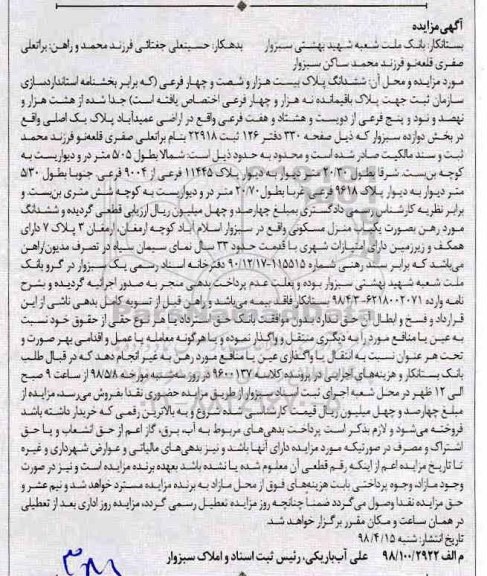 آگهی مزایده
بستانکار: بانک ملت شعبه شهید بهشتی سبزوار بدهکار: حسینعلی جغتائی فرزند محمد و راهن: براتعلی
صفری قلعه‌نو فرزند محمد ساکن سبزوار
مورد مزایده و محل آن: ششدانگ پلاک بیست هزار و شصت و چهار فرعی (که برابر بخشنامه استانداردسازی
سازمان ثبت جهت پلاک باقیمانده نه هزار و چهار فرعی اختصاص یافته است) جدا شده از هشت هزار و
نهصد و نود و پنج فرعی از دویست و هشتاد و هفت فرعی واقع در اراضی عمیدآباد پلاک یک اصلی واقع
در بخش دوازده سبزوار که ذیل صفحه ۳۳۰ دفتر ۱۲۶ ثبت ۲۲۹۱۸ بنام براتعلی صفری قلعه‌نو فرزند محمد
ثبت و سند مالکیت صادر شده است و محدود به حدود ذیل است: شمالا بطول ۵/۰۵ متر در و دیواریست به
کوچه بن‌بست. شرقا بطول ۲۰/۲۰ متر دیوار به دیوار پلاک ۱۱۴۴۵ فرعی از ۹۰۰۴ فرعی. جنوبا بطول ۵/۳۰
متر دیوار به دیوار پلاک ۹۶۱۸ فرعی. غربا بطول ۲۰/۷۰ متر در و دیواریست به کوچه شش متری بن‌بست و
برابر نظریه کارشناس رسمی دادگستری بمبلغ چهارصد و چهل میلیون ریال ارزیابی قطعی گردیده و ششدانگ
مورد رهن بصورت یکباب منزل مسکونی واقع در سبزوار اسلام آباد کوچه ارمغان، ارمغان ۳ پلاک ۷ دارای
همکف و زیرزمین دارای امتیازات شهری با قدمت حدود ۳۳ سال نمای سیمان سیاه در تصرف مدیون/راهن
می‌باشد که برابر سند رهنی شماره ۱۱۵۵۱۵-۹۰/۱۲/۱۷ دفترخانه اسناد رسمی یک سبزوار در گرو بانک
ملت شعبه شهید بهشتی سبزوار بوده و بعلت عدم پرداخت بدهی منجر به صدور اجرائیه گردیده و بشرح
نامه وارده ۶۲۱۸۰۰۲۰۷۱-۹۸/۴/۳ بستانکار فاقد بیمه می‌باشد و راهن قبل از تسویه کامل بدهی ناشی از این
قرارداد و فسخ و ابطال آن حق ندارد بدون موافقت بانک حق استرداد یا هر نوع حقی از حقوق خود نسبت
به عین یا منافع مورد را به دیگری منتقل و واگذار نموده و یا هرگونه معامله یا عمل و اقدامی بهر صورت و
تحت هر عنوان نسبت به انتقال یا واگذاری عین یا منافع مورد رهن به غیر انجام دهد که در قبال طلب
بانک بستانکار و هزینه‌های اجرایی در پرونده کلاسه ۹۶۰۰۱۳۷ در روز سه‌شنبه مورخه ۹۸/۵/۸ از ساعت ۹ صبح
الی ۱۲ ظهر در محل شعبه اجرای ثبت اسناد سبزوار از طریق مزایده حضوری نقدا بفروش می‌رسد. مزایده از
مبلغ چهارصد و چهل میلیون ریال قیمت کارشناسی شده شروع و به بالاترین رقمی که خریدار داشته باشد
فروخته می‌شود و لازم بذکر است پرداخت بدهی‌های مربوط به آب، برق، گاز اعم از حق انشعاب و یا حق
اشتراک و مصرف در صورتیکه مورد مزایده دارای آنها باشد و نیز بدهی‌های مالیاتی و عوارض شهرداری و غیره
تا تاریخ مزایده اعم از اینکه رقم قطعی آن معلوم شده یا نشده باشد بعهده برنده مزایده است و نیز در صورت
وجود مازاد، وجوه پرداختی بابت هزینه‌های فوق از محل مازاد به برنده مزایده مسترد خواهد شد و نیم عشر و
حق مزایده نقدا وصول می‌گردد ضمناً چنانچه روز مزایده تعطیل رسمی گردد، مزایده روز اداری بعد از تعطیلی
در همان ساعت و مکان مقرر برگزار خواهد شد.
تاریخ انتشار: شنبه ۹۸/۴/۱۵
م الف ۹۸/۱۰۰/۲۹۲۲ علی آب‌باریکی، رئیس ثبت اسناد و املاک سبزوار